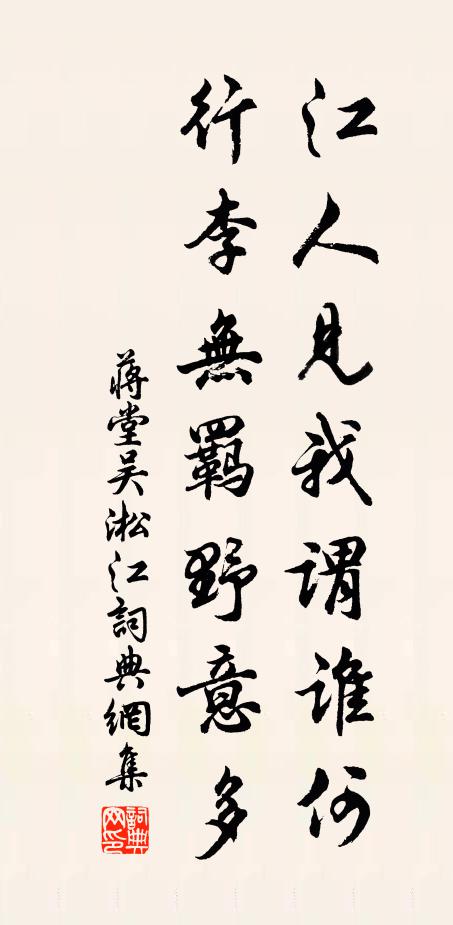 江人見我謂誰何
行李無羈野意多
蔣堂吴淞江詞典網集
詞典
网印